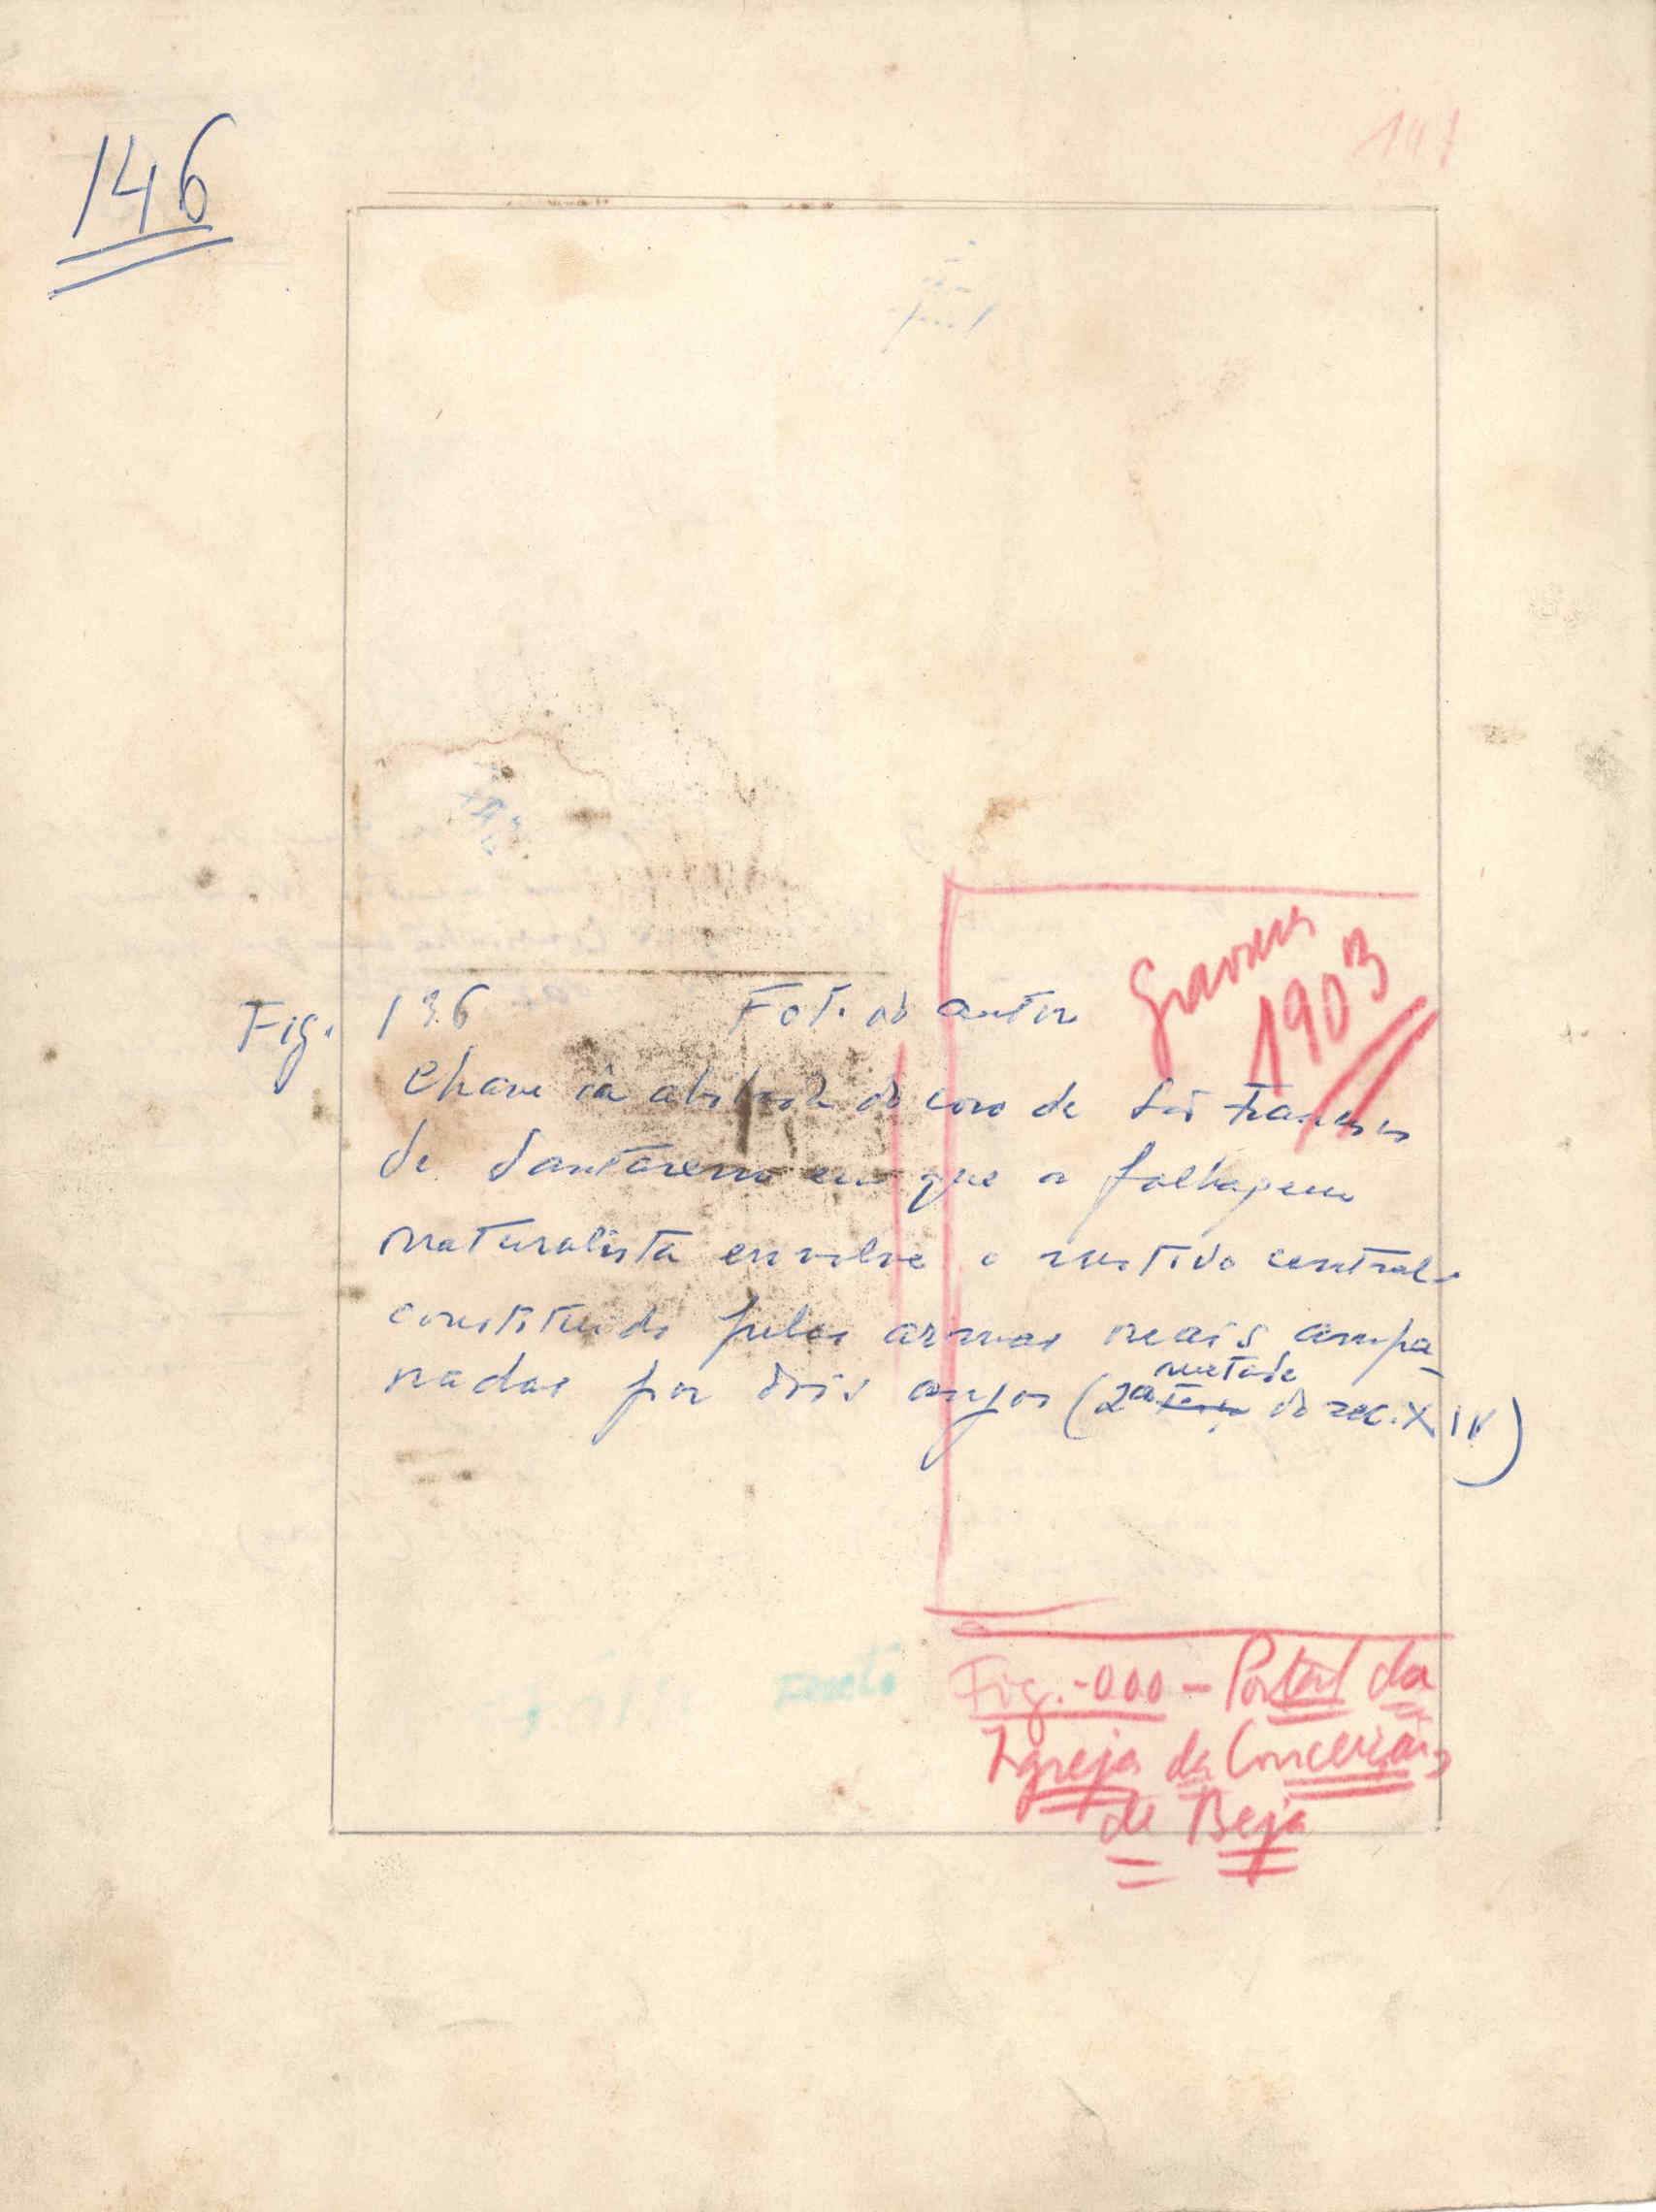 146
141
Gravura
1903
Fig. 136 Fot. do autor
Chave da abobada do coro de São Francisco
de Santarem em que a folhagem
naturalista envolve o motivo central
constituido pelas armas reais ampa-
radas por dois anjos (2a metade do sec. XIV)
Fig. -000- Portal da
Igreja da Conceição
de Beja